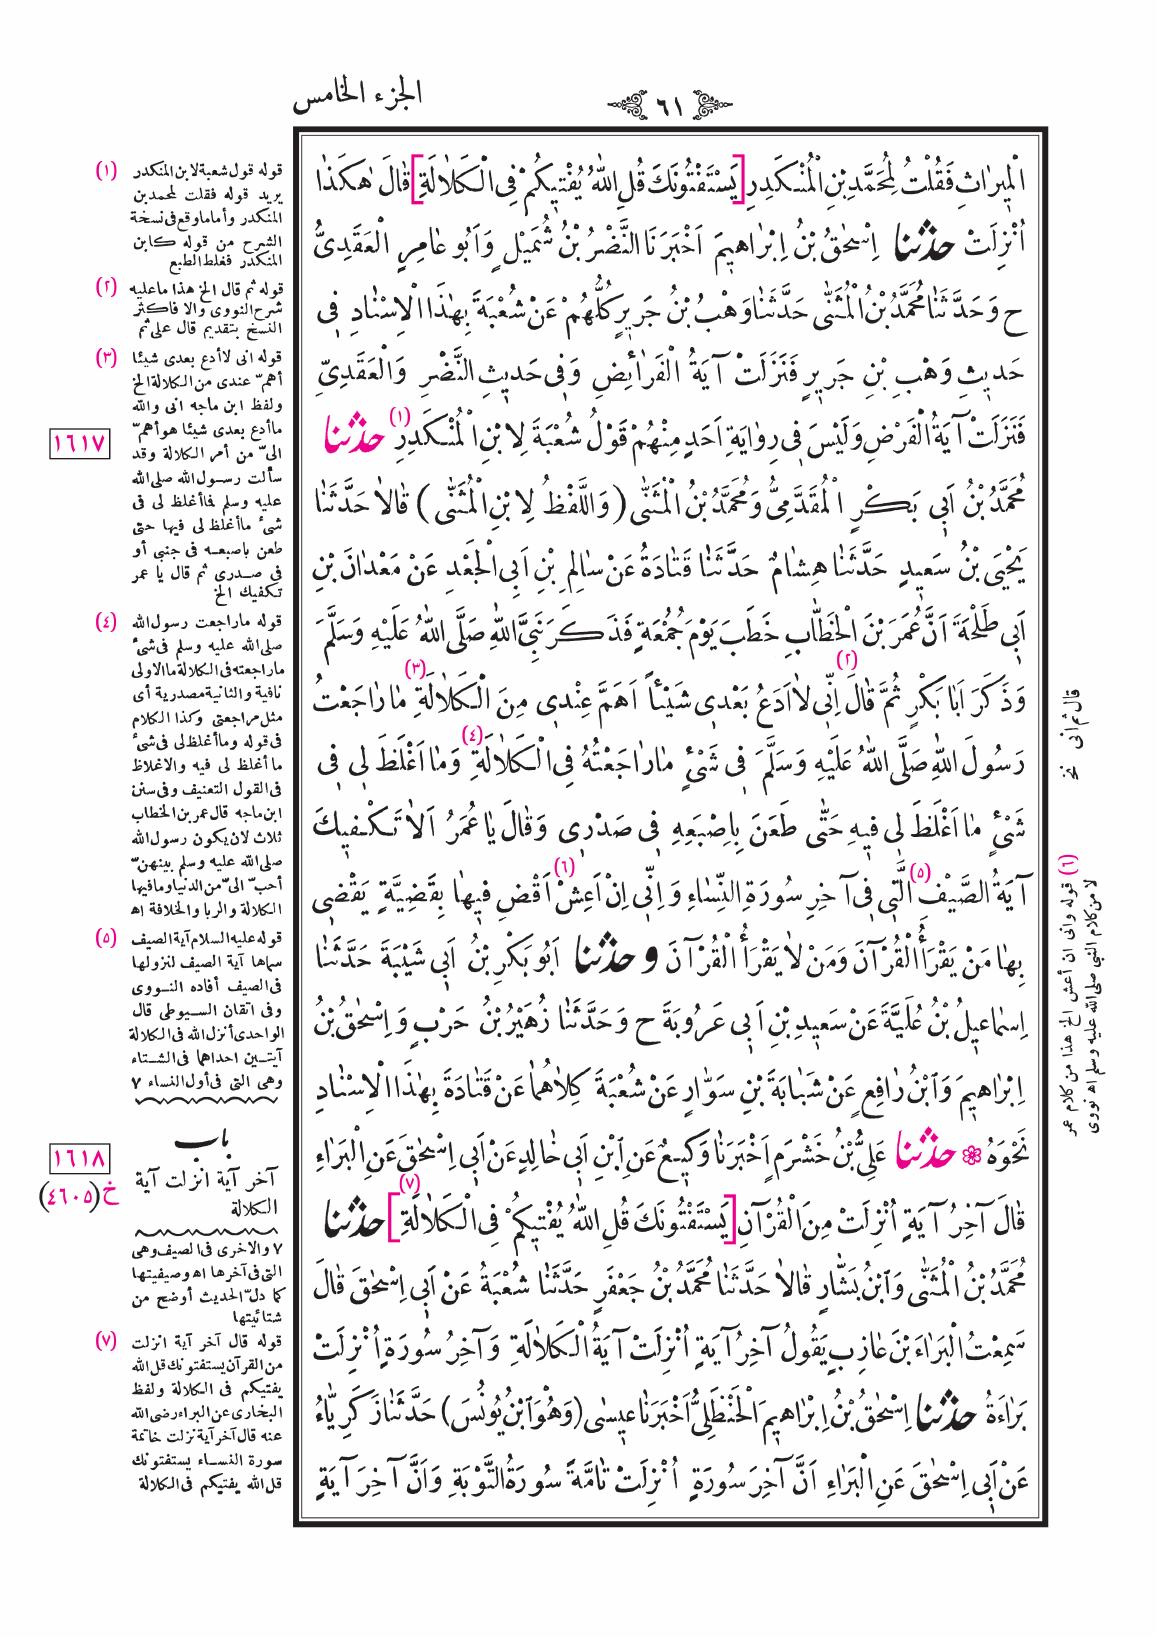 الجزء الخامس
٦١
الْمِيرَاثِ فَقُلْتُ لِمُحَمَّدِ بْنِ الْمُنْكَدِرِ [يَسْتَفْتُونَكَ قُلِ اللهُ يُفْتِيكُمْ فِي الْكَلَالَةِ] قَالَ هٰكَذَا
اُنْزِلَتْ حدثنا اِسْحٰقُ بْنُ اِبْرَاهِيمَ اَخْبَرَنَا النَّضْرُ بْنُ شُمَيْلٍ وَاَبُو عَامِرٍ الْعَقَدِىُّ
ح وَحَدَّثَنَا مُحَمَّدُ بْنُ الْمُثَنّٰى حَدَّثَنَا وَهْبُ بْنُ جَرِيرٍ كُلُّهُمْ عَنْ شُعْبَةَ بِهٰذَا الْاِسْنَادِ فِى
حَدِيثِ وَهْبِ بْنِ جَرِيرٍ فَنَزَلَتْ آيَةُ الْفَرَائِضِ وَفِى حَدِيثِ النَّضْرِ وَالْعَقَدِىِّ
فَنَزَلَتْ آيَةُ الْفَرْضِ وَلَيْسَ فِى رِوَايَةِ اَحَدٍ مِنْهُمْ قَوْلُ شُعْبَةَ لِابْنِ الْمُنْكَدِرِ (١) حدثنا
مُحَمَّدُ بْنُ اَبِى بَكْرٍ الْمُقَدَّمِىُّ وَمُحَمَّدُ بْنُ الْمُثَنّٰى (وَاللَّفْظُ لِابْنِ الْمُثَنّٰى) قَالَا حَدَّثَنَا
يَحْيَى بْنُ سَعِيدٍ حَدَّثَنَا هِشَامٌ حَدَّثَنَا قَتَادَةُ عَنْ سَالِمِ بْنِ اَبِى الْجَعْدِ عَنْ مَعْدَانَ بْنِ
اَبِى طَلْحَةَ اَنَّ عُمَرَ بْنَ الْخَطَّابِ خَطَبَ يَوْمَ جُمُعَةٍ فَذَكَرَ نَبِىَّ اللهِ صَلَّى اللهُ عَلَيْهِ وَسَلَّمَ
وَذَكَرَ اَبَا بَكْرٍ ثُمَّ قَالَ (٢) اِنّى لَا اَدَعُ بَعْدِى شَيْئاً اَهَمَّ عِنْدِى مِنَ الْكَلَالَةِ (٣) مَا رَاجَعْتُ
رَسُولَ اللهِ صَلَّى اللهُ عَلَيْهِ وَسَلَّمَ فِى شَىْءٍ مَا رَاجَعْتُهُ فِى الْكَلَالَةِ (٤) وَمَا اَغْلَظَ لِى فِى
شَىْءٍ مَا اَغْلَظَ لِى فِيهِ حَتّٰى طَعَنَ بِاِصْبَعِهِ فِى صَدْرِى وَقَالَ يَا عُمَرُ اَلَا تَكْفِيكَ
آيَةُ الصَّيْفِ (٥) الَّتِى فِى آخِرِ سُورَةِ النِّسَاءِ وَاِنِّى اِنْ اَعِشْ (٦) اَقْضِ فِيهَا بِقَضِيَّةٍ يَقْضِى
بِهَا مَنْ يَقْرَأُ الْقُرْآنَ وَمَنْ لَا يَقْرَأُ الْقُرْآنَ وحدثنا اَبُو بَكْرِ بْنُ اَبِى شَيْبَةَ حَدَّثَنَا
اِسْمَاعِيلُ بْنُ عُلَيَّةَ عَنْ سَعِيدِ بْنِ اَبِى عَرُوبَةَ ح وَحَدَّثَنَا زُهَيْرُ بْنُ حَرْبٍ وَاِسْحٰقُ بْنُ
اِبْرَاهِيمَ وَابْنُ رَافِعٍ عَنْ شَبَابَةَ بْنِ سَوَّارٍ عَنْ شُعْبَةَ كِلَاهُمَا عَنْ قَتَادَةَ بِهٰذَا الْاِسْنَادِ
نَحْوَهُ ۞ حدثنا عَلِىُّ بْنُ خَشْرَمٍ اَخْبَرَنَا وَكِيعٌ عَنِ ابْنِ اَبِى خَالِدٍ عَنْ اَبِى اِسْحٰقَ عَنِ الْبَرَاءِ
قَالَ آخِرُ آيَةٍ اُنْزِلَتْ مِنَ الْقُرْآنِ [يَسْتَفْتُونَكَ قُلِ اللهُ يُفْتِيكُمْ فِى الْكَلَالَةِ] (٧) حدثنا
مُحَمَّدُ بْنُ الْمُثَنّٰى وَابْنُ بَشَّارٍ قَالَا حَدَّثَنَا مُحَمَّدُ بْنُ جَعْفَرٍ حَدَّثَنَا شُعْبَةُ عَنْ اَبِى اِسْحٰقَ قَالَ
سَمِعْتُ الْبَرَاءَ بْنَ عَازِبٍ يَقُولُ آخِرُ آيَةٍ اُنْزِلَتْ آيَةُ الْكَلَالَةِ وَآخِرُ سُورَةٍ اُنْزِلَتْ
بَرَاءَةُ حدثنا اِسْحٰقُ بْنُ اِبْرَاهِيمَ الْحَنْظَلِىُّ اَخْبَرَنَا عِيسٰى (وَهُوَ ابْنُ يُونُسَ) حَدَّثَنَا زَكَرِيَّاءُ
عَنْ اَبِى اِسْحٰقَ عَنِ الْبَرَاءِ اَنَّ آخِرَ سُورَةٍ اُنْزِلَتْ تَامَّةً سُورَةُ التَّوْبَةِ وَاَنَّ آخِرَ آيَةٍ
قال ثم انى نخ
(٦) قوله وانى ان أعش الخ هذا من كلام عمر
لا من كلام النبى صلى الله عليه وسلم اه نووى
(١) قوله قول شعبة لابن المنكدر
يريد قوله فقلت لمحمد بن
المنكدر وأما ما وقع فى نسخة
الشرح من قوله كابن
المنكدر فغلط الطبع
(٢) قوله ثم قال الخ هذا ما عليه
شرح النووى والا فاكثر
النسخ بتقديم قال على ثم
(٣) قوله انى لا أدع بعدى شيئا
أهمّ عندى من الكلالة الخ
ولفظ ابن ماجه انى والله
ما أدع بعدى شيئا هو أهمّ
الىّ من أمر الكلالة وقد
سألت رسول الله صلى الله
عليه وسلم فما أغلظ لى فى
شىء ما أغلظ لى فيها حتى
طعن باصبعه فى جنبى أو
فى صدرى ثم قال يا عمر
تكفيك الخ
(٤) قوله ما راجعت رسول الله
صلى الله عليه وسلم فى شىء
ما راجعته فى الكلالة ما الاولى
نافية والثانية مصدرية أى
مثل مراجعتى وكذا الكلام
فى قوله وما أغلظ لى فى شىء
ما أغلظ لى فيه والاغلاظ
فى القول التعنيف وفى سنن
ابن ماجه قال عمر بن الخطاب
ثلاث لان يكون رسول الله
صلى الله عليه وسلم بينهنّ
أحبّ الىّ من الدنيا وما فيها
الكلالة والربا والخلافة اه
(٥) قوله عليه السلام آية الصيف
سماها آية الصيف لنزولها
فى الصيف أفاده النووى
وفى اتقان السيوطى قال
الواحدى أنزل الله فى الكلالة
آيتين احداهما فى الشتاء
وهى التى فى أول النساء ٧
باب
آخر آية انزلت آية
الكلالة
٧ والاخرى فى الصيف وهى
التى فى آخرها اه وصيفيتها
كما دلّ الحديث أوضح من
شتائيتها
(٧) قوله قال آخر آية انزلت
من القرآن يستفتونك قل الله
يفتيكم فى الكلالة ولفظ
البخارى عن البراء رضى الله
عنه قال آخر آية نزلت خاتمة
سورة النساء يستفتونك
قل الله يفتيكم فى الكلالة
١٦١٧
١٦١٨
خ (٤٦٠٥)